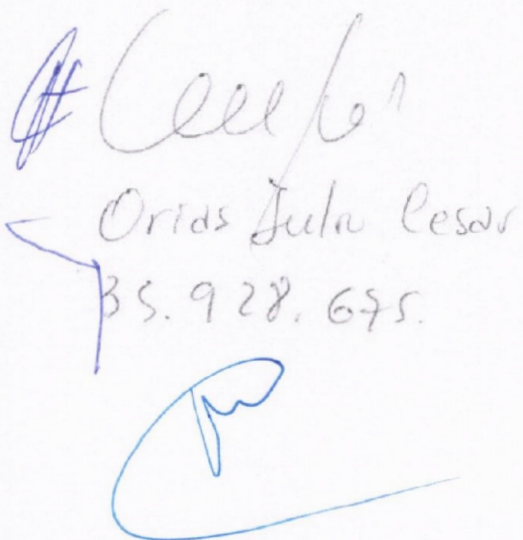 Orias Julio Cesar
35.928.675.